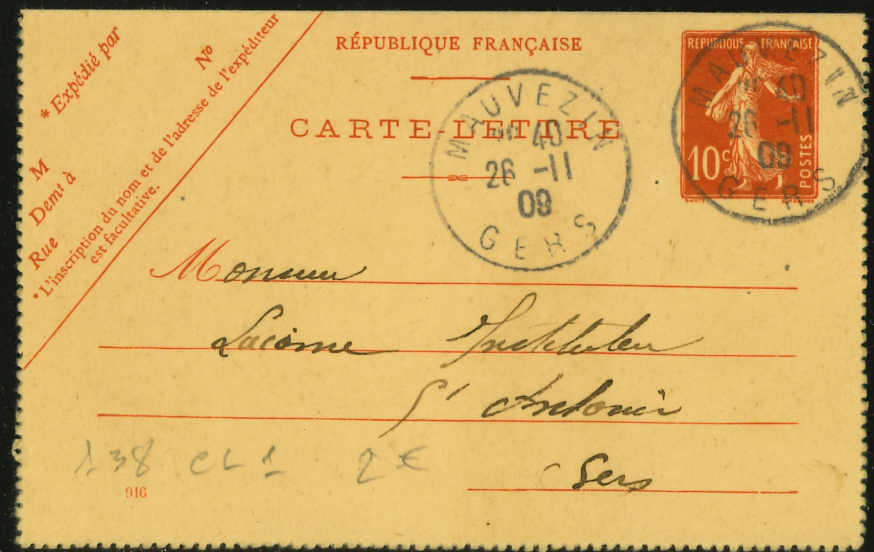 * Expédié par
N°
M
Demt à
Rue
* L'inscription du nom et de l'adresse de l'expéditeur
est facultative.
RÉPUBLIQUE FRANÇAISE
CARTE-LETTRE
MAUVEZIN
40
26 -11
09
GERS
RÉPUBLIQUE FRANÇAISE
10c
POSTES
MAUVEZIN
40
26 -11
09
GERS
Monsieur
Lacôme Instituteur
St Antonin
Gers
138 CL1 2€
916